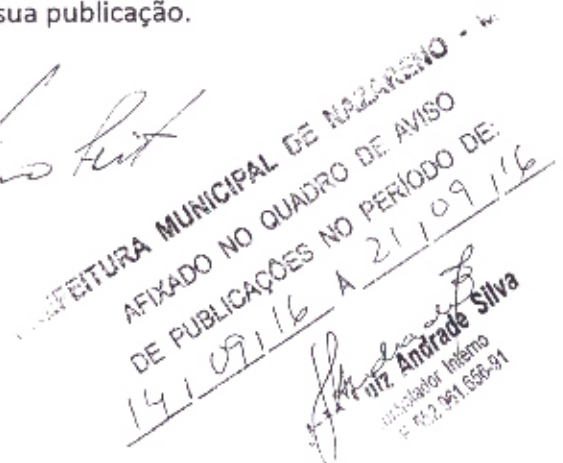 sua publicação.
PREFEITURA MUNICIPAL DE NAZARENO -
AFIXADO NO QUADRO DE AVISO
DE PUBLICAÇÕES NO PERÍODO DE:
14/09/16 A 21/09/16
Luiz Andrade Silva
Controlador Interno